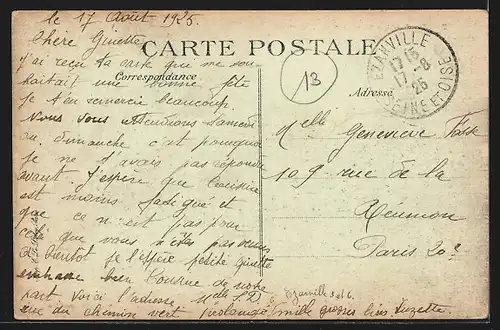 le 17 Août 1925
Chère Ginette
CARTE POSTALE
Correspondance
Adresse
13
EZANVILLE
17 15
17-8
25
SEINE-ET-OISE
j'ai reçu ta carte que me sou
haitait une bonne fête
je t'en remercie beaucoup.
Nous vous attendions samedi
ou dimanche c'est pourquoi
je ne t'avais pas répondu
avant j'espère que
est moins et
que ce n'est pas pour
cela que vous n'êtes pas venus
à bientôt je l'espère petite ginette
embrasse bien de notre
part voici l'adresse
rue du chemin vert prolongée
mille grosses bises Suzette
Melle Geneviève
109 rue de la
Réunion
Paris 20e
Ezanville S et O.